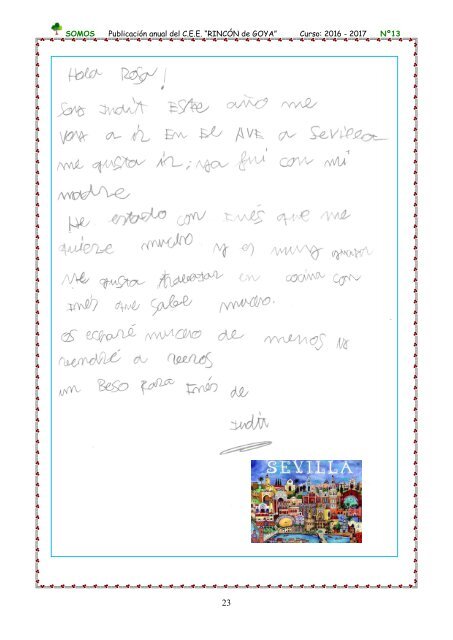 SOMOS Publicación anual del C.E.E. "RINCÓN de GOYA" Curso: 2016 - 2017 Nº13
Hola Rosa!
Soy Judit Este año me
voy a ir En El AVE a Sevilla
me gusta ir; ya fui con mi
madre
He estado con Inés que me
quiere mucho y es muy
Me gusta trabajar en cocina con
Inés que sabe mucho.
os echaré mucho de menos y
vendré a veros
un Beso para Inés de
Judit
SEVILLA
23